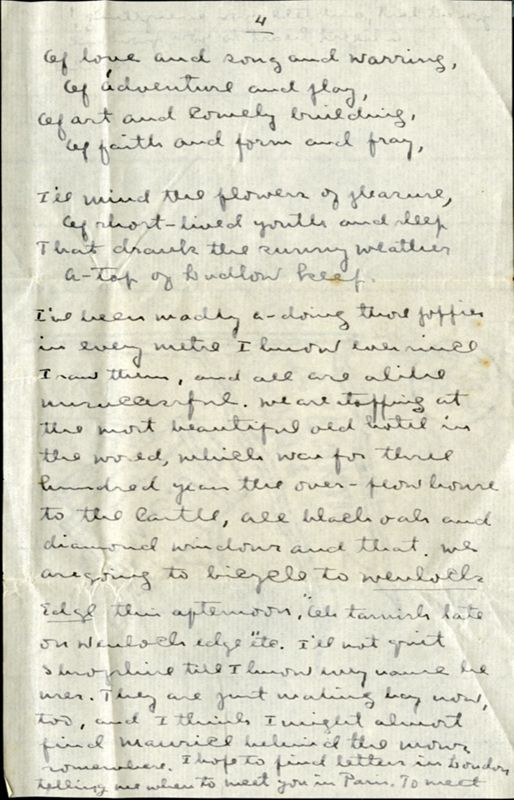 4
Of love and song and warring,
Of adventure and play,
Of art and comely building,
Of faith and form and fray,
I'll mind the flowers of pleasure,
Of short-lived youth and sleep
That drank the sunny weather
A-top of Ludlow keep.
I've been madly a-doing those poppies
in every metre I know ever since
I saw them, and all are alike
unsuccessful. We are stopping at
the most beautiful old hotel in
the world, which was for three
hundred years the over-flow house
to the Castle, all black oak and
diamond windows and that. We
are going to bicycle to Wenlock
Edge this afternoon, "Oh tarnish late
on Wenlock edge" etc. I'll not quit
Shropshire till I know every name he
uses. They are just making hay now,
too, and I think I might almost
find Maurice behind the mows
somewhere. I hope to find letters in London
telling me when to meet you in Paris. To meet